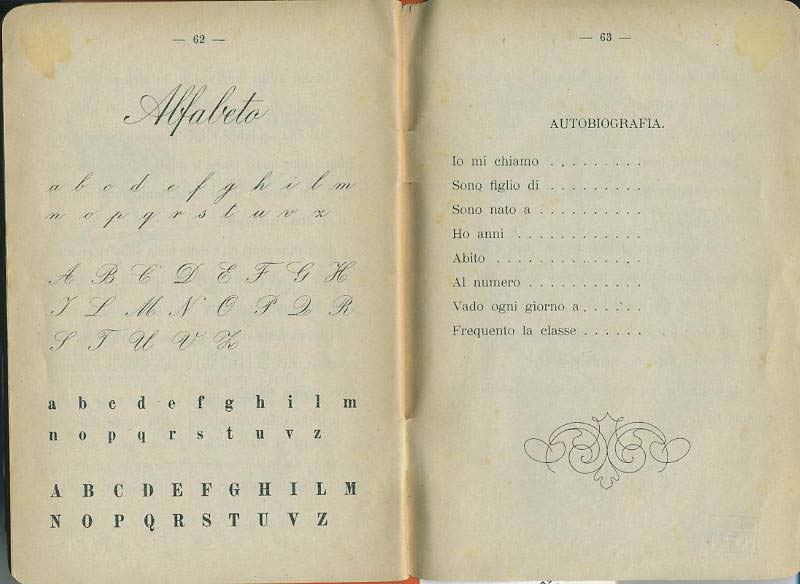 — 62 —
Alfabeto
a b c d e f g h i l m
n o p q r s t u v z
A B C D E F G H
I L M N O P Q R
S T U V Z
a b c d e f g h i l m
n o p q r s t u v z
A B C D E F G H I L M
N O P Q R S T U V Z
— 63 —
AUTOBIOGRAFIA.
Io mi chiamo . . . . . . . . .
Sono figlio di . . . . . . . . .
Sono nato a . . . . . . . . . .
Ho anni . . . . . . . . . . . .
Abito . . . . . . . . . . . . .
Al numero . . . . . . . . . . .
Vado ogni giorno a . . . . . .
Frequento la classe . . . . . .